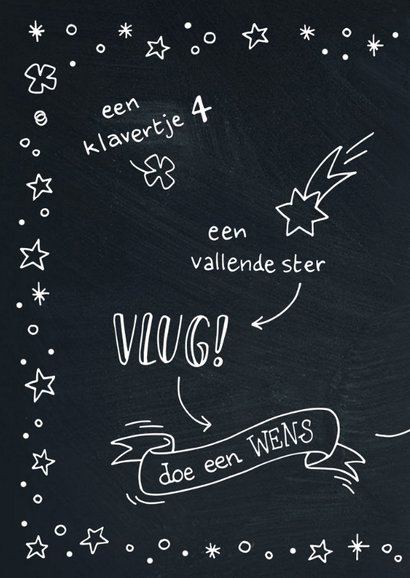 een
klavertje 4
een
vallende ster
VLUG!
doe een WENS